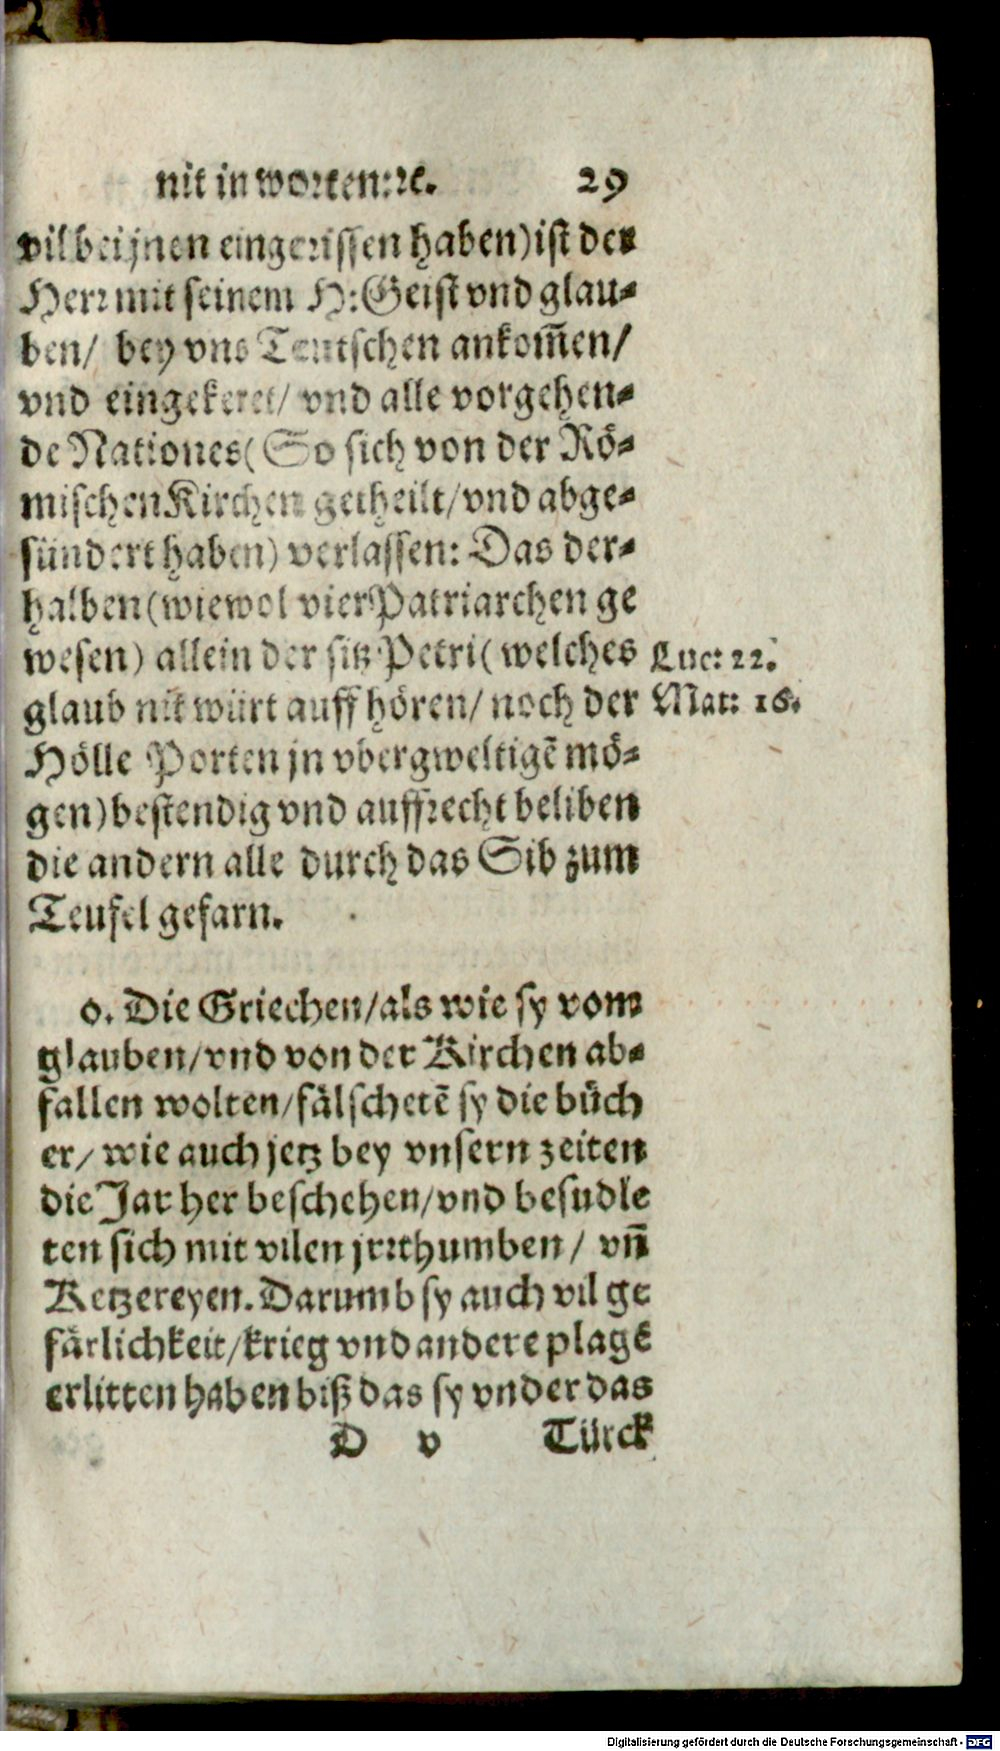 nit in worten:ꝛc. 29
vil bei jnen eingerissen haben) ist der
Herr mit seinem H: Geist vnd glau⸗
ben/ bey vns Teutschen ankom̃en/
vnd eingekeret/ vnd alle vorgehen⸗
de Nationes (So sich von der Rö⸗
mischen Kirchen getheilt/ vnd abge⸗
sündert haben) verlassen: Das der⸗
halben (wiewol vier Patriarchen ge
wesen) allein der sitz Petri (welches
Luc: 22.
glaub nit würt auff hören/ noch der
Mat: 16.
Hölle Porten jn vbergweltigẽ mö⸗
gen) bestendig vnd auffrecht beliben
die andern alle durch das Sib zum
Teufel gefarn.
o. Die Griechen/ als wie sy vom
glauben/ vnd von der Kirchen ab⸗
fallen wolten/ fälschetẽ sy die büch
er/ wie auch jetz bey vnsern zeiten
die Jar her beschehen/ vnd besudle
ten sich mit vilen jrrthumben/ vñ
Ketzereyen. Darumb sy auch vil ge
färlichkeit/ krieg vnd andere plagẽ
erlitten haben biß das sy vnder das
D v Türck
Digitalisierung gefördert durch die Deutsche Forschungsgemeinschaft - DFG